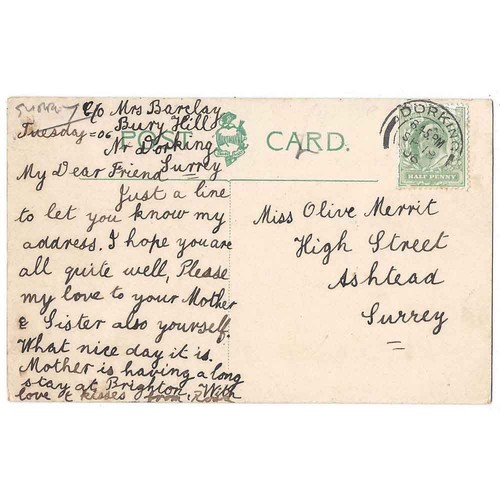 Surrey
c/o Mrs Barclay
Tuesday = 06 Bury Hill
Nr Dorking
Surrey
POST CARD.
My Dear Friend
Just a line
to let you know my
address. I hope you are
all quite well, Please
my love to your Mother
& Sister also yourself.
What nice day it is.
Mother is having a long
stay at Brighton. With
love & kisses from
Miss Olive Merrit
High Street
Ashtead
Surrey
DORKING
HALF PENNY